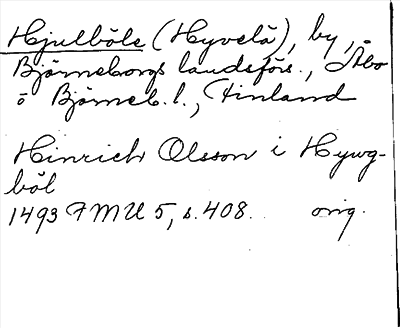 Hjulböle (Hyvelä), by,
Björneborgs landsförs., Åbo
o Björneb. l., Finland
Hinrich Olsson i Hywg-
böl
1493 FMU 5, s. 408. orig.